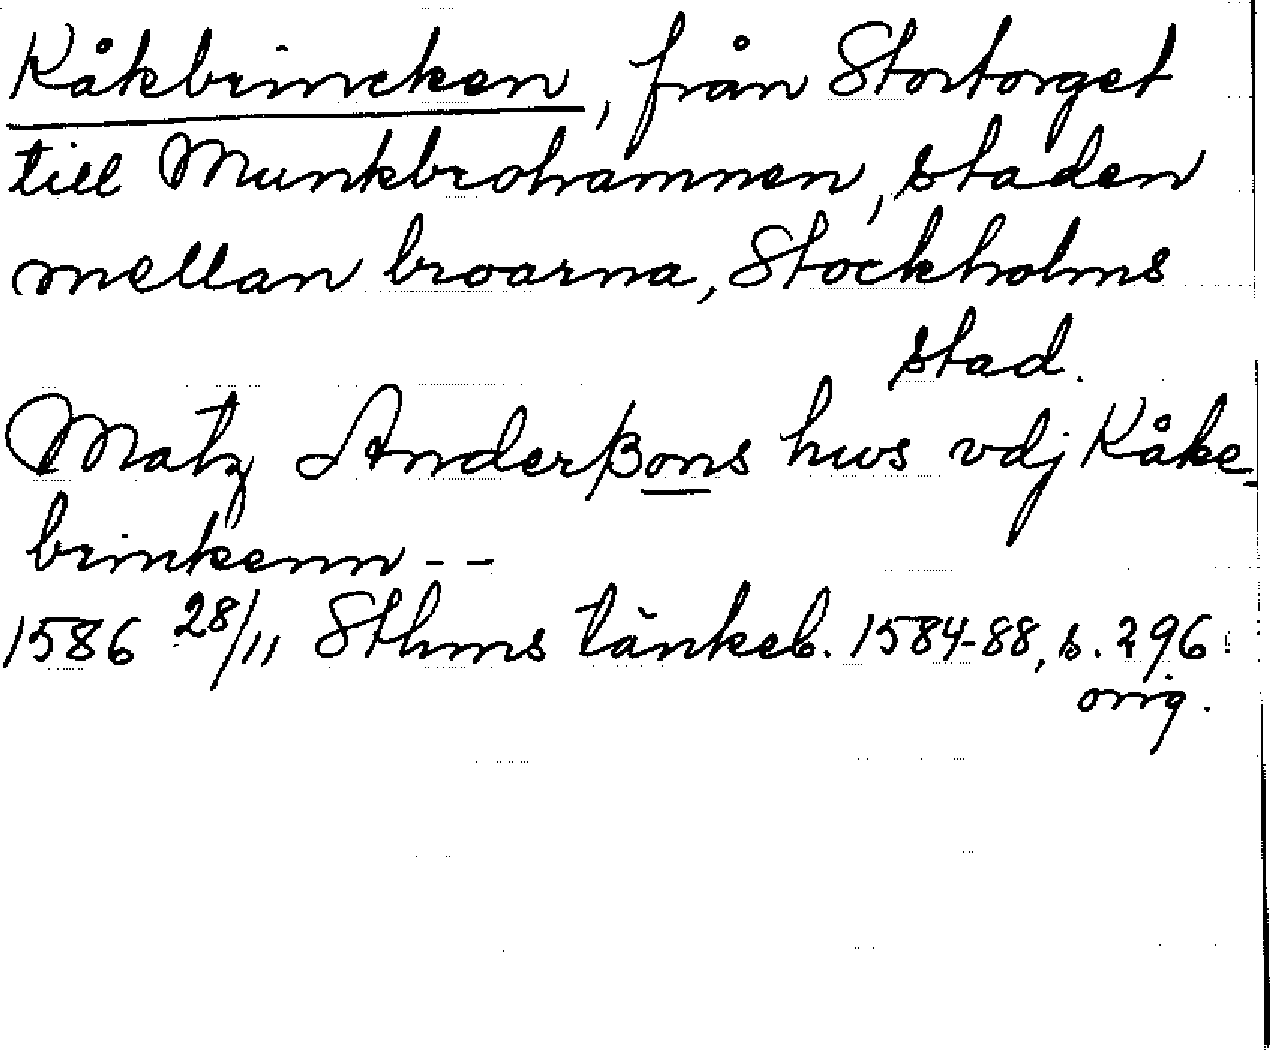 Kåkbrincken, från Stortorget
till Munkbrohamnen, staden
mellan broarna, Stockholms
stad.
Matz Anderßons hws vdj Kåke-
brinkenn - -
1586 28/11 Sthms tänkeb. 1584-88, s. 296:
orig.